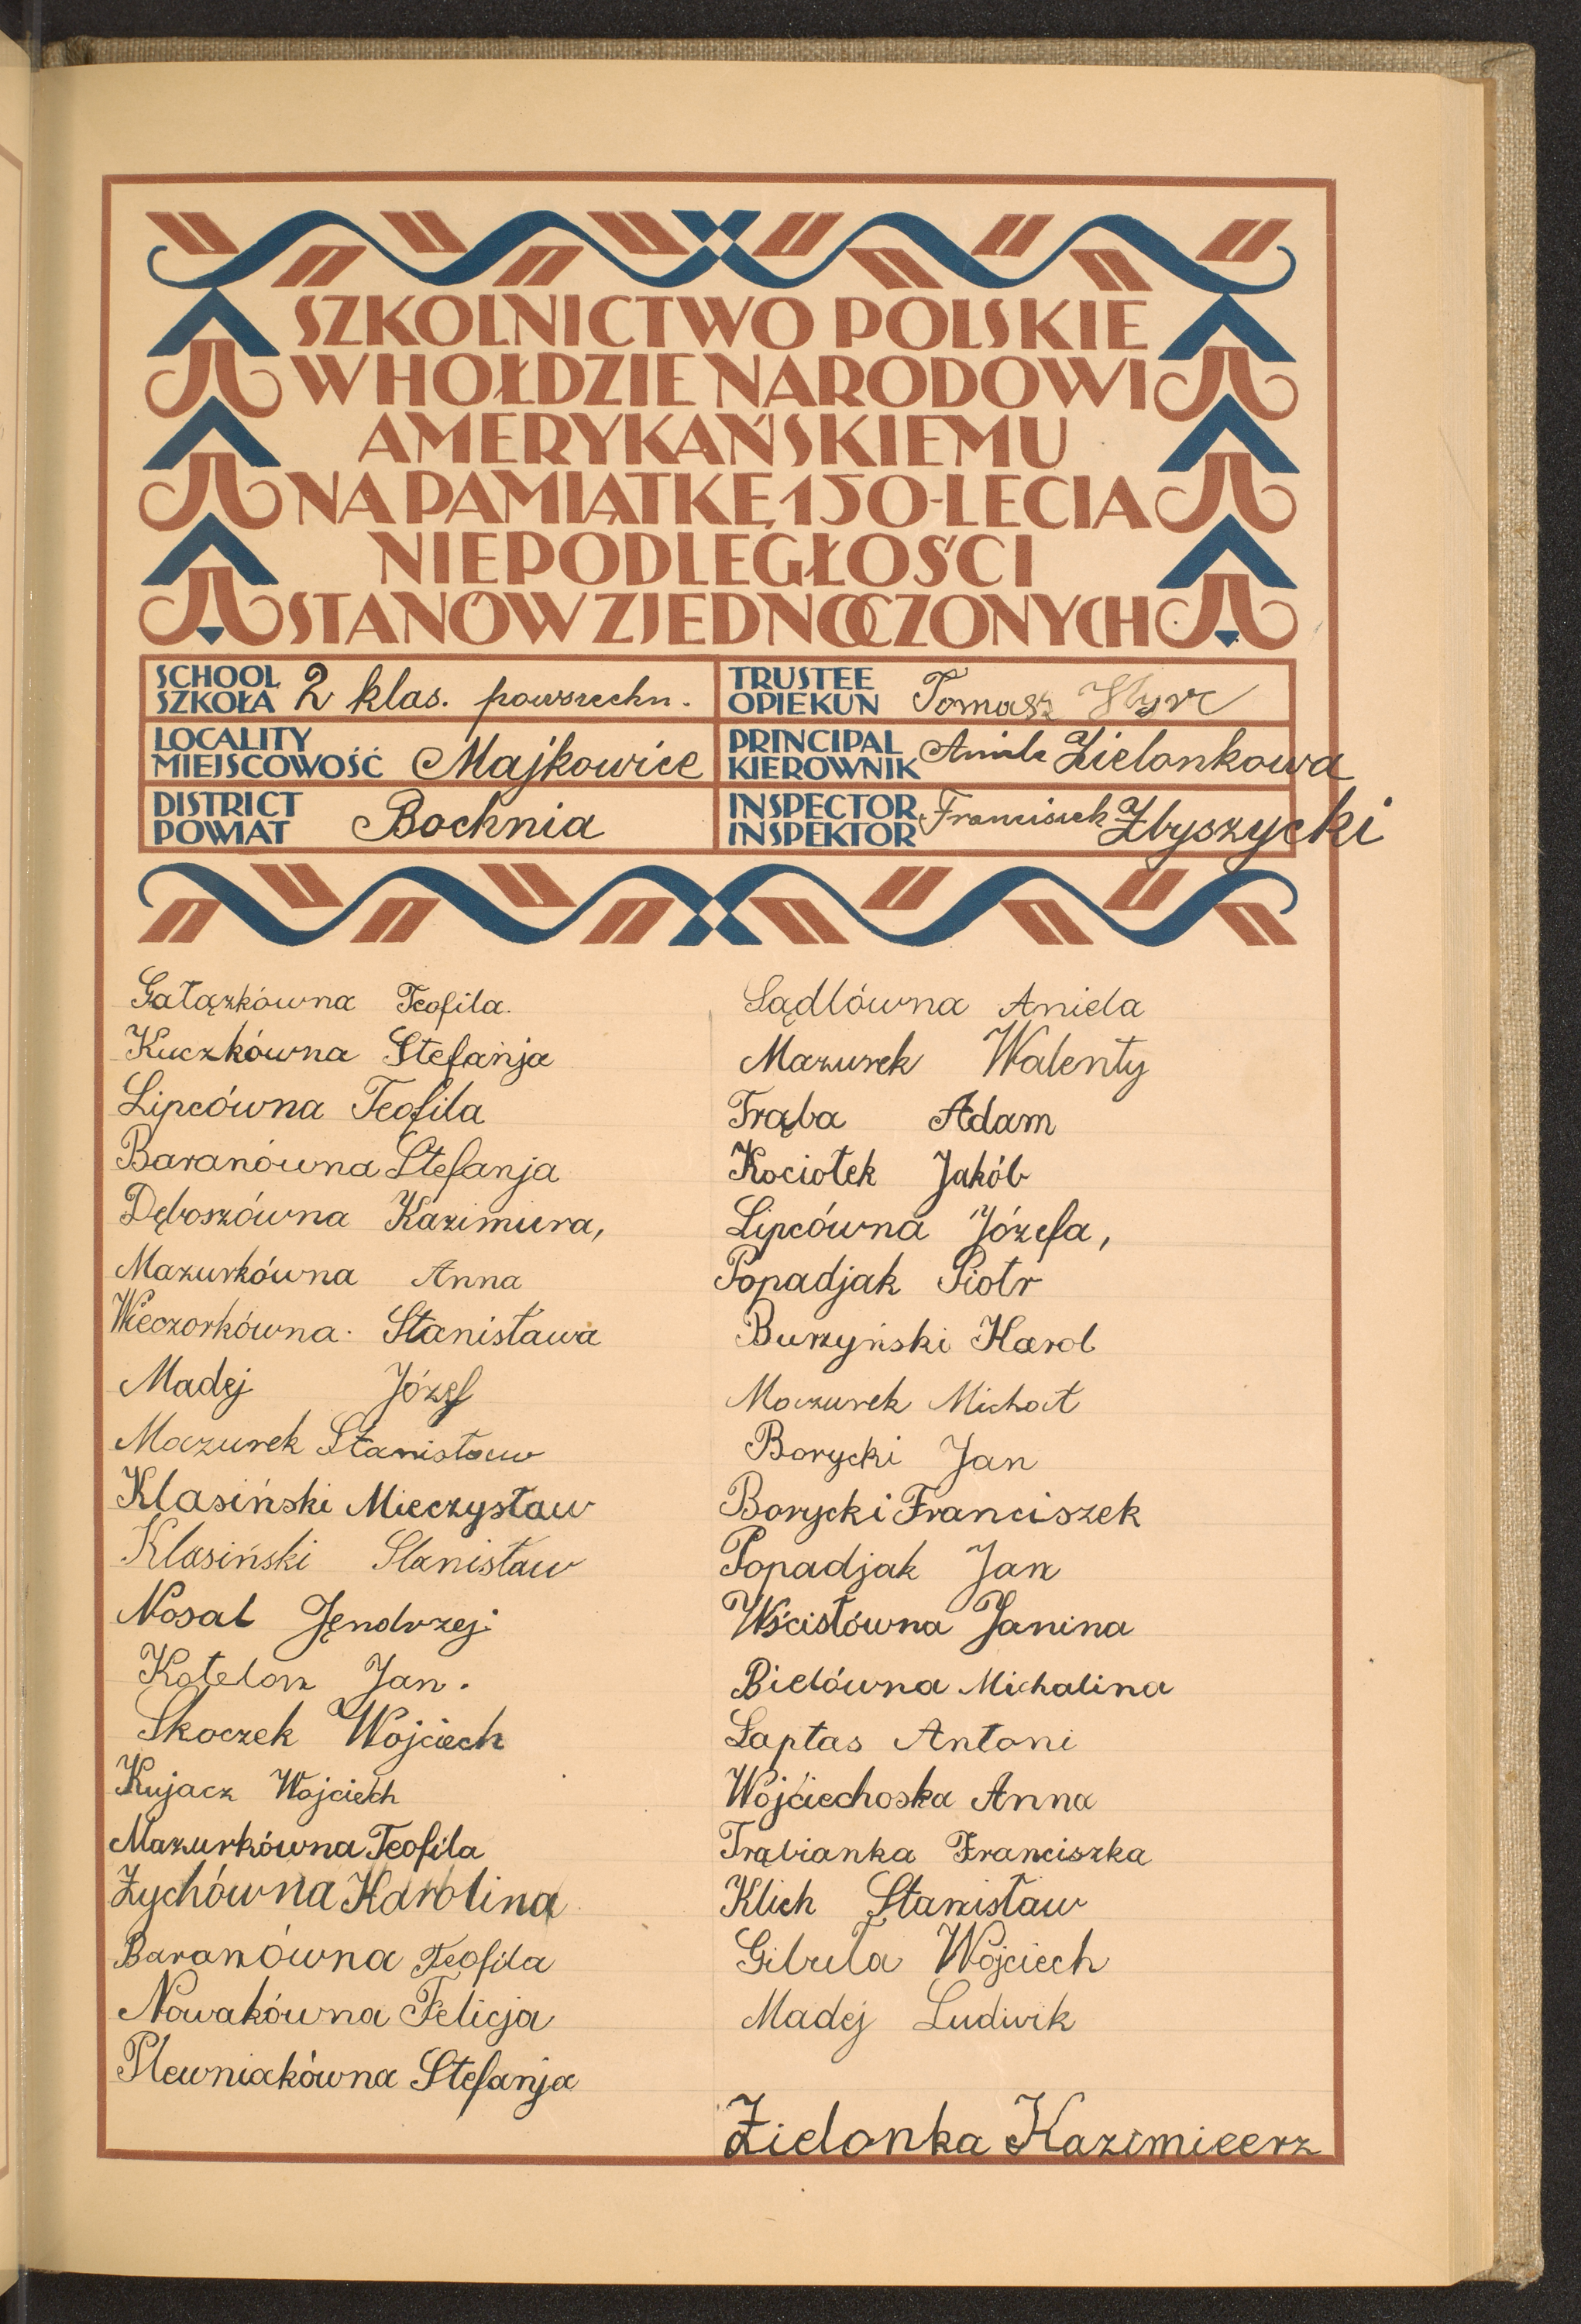 SZKOLNICTWO POLSKIE
W HOŁDZIE NARODOWI
AMERYKAŃSKIEMU
NA PAMIĄTKĘ 150-LECIA
NIEPODLEGŁOŚCI
STANÓW ZJEDNOCZONYCH
SCHOOL
SZKOŁA 2 klas. powszechn.
TRUSTEE
OPIEKUN Tomasz
LOCALITY
MIEJSCOWOŚĆ Majkowice
PRINCIPAL
KIEROWNIK Aniela Zielonkowa
DISTRICT
POWIAT Bochnia
INSPECTOR
INSPEKTOR Franciszek Zbyszycki
Gałązkówna Teofila.
Kuczkówna Stefanja
Lipcówna Teofila
Baranówna Stefanja
Dęboszówna Kazimiera,
Mazurkówna Anna
Wieczorkówna. Stanisława
Madej Józef
Mazurek Stanisław
Klasiński Mieczysław
Klasiński Stanisław
Nosal Jędrzej
Kotelon Jan.
Skoczek Wojciech
Kujacz Wojciech
Mazurkówna Teofila
Zychówna Karolina
Baranówna Teofila
Nowakówna Felicja
Plewniakówna Stefanja
Sądlówna Aniela
Mazurek Walenty
Trąba Adam
Kociołek Jakób
Lipcówna Józefa,
Popadjak Piotr
Burzyński Karol
Mazurek Michał
Borycki Jan
Borycki Franciszek
Popadjak Jan
Wścisłówna Janina
Bielówna Michalina
Łaptas Antoni
Wojciechoska Anna
Trąbianka Franciszka
Klich Stanisław
Gibuła Wojciech
Madej Ludwik
Zielonka Kazimieerz